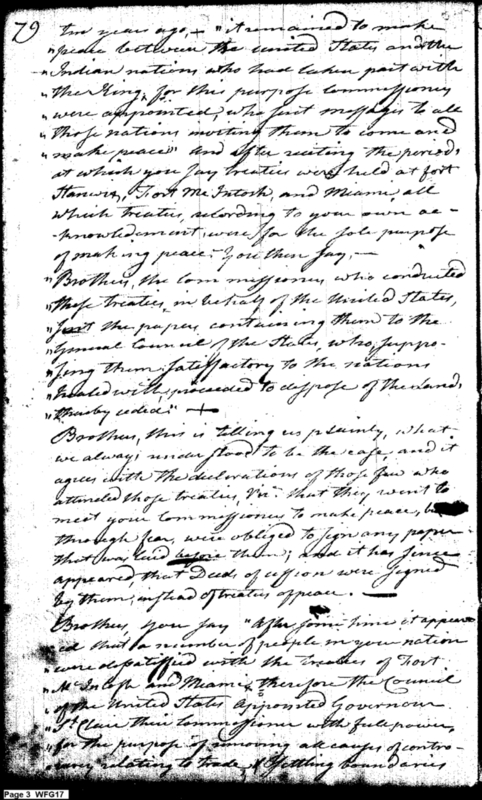 79
ten years ago, + "it remained to make
"peace between the United States and the
"Indian nations who had taken part with
"the King, for this purpose Commissioners
"were appointed, who sent messages to all
"those nations inviting them to come and
"make peace" and after reciting the periods
at which you say treaties were held at fort
Stanwix, Fort McIntosh, and Miami, all
which treaties, according to your own ac-
-knowledgement, were for the sole purpose
of making peace. You then say, —
"Brothers, the Commissioners who conducted
"these treaties, in behalf of the United States,
"sent the papers, containing them to the
"General Council of the States, who, suppo-
"sing them satisfactory to the nations
"treated with, proceeded to dispose of the Lands
"thereby ceded." +
Brothers, this is telling us plainly, what
we always understood to be the case, and it
agrees with the declarations of those few who
attended those treaties, viz. that they went to
meet your Commissioners to make peace,
through fear, were obliged to sign any paper
that was laid before them; and it has since
appeared, that Deeds of cession were signed
by them, instead of treaties of peace. —
Brothers, you say "After some time it appear
"ed that a number of people in your nation
"were dissatisfied with the treaties of Fort
"McIntosh and Miami, therefore the Council
"of the United States appointed Governour
"St Clair their Commissioner with full power,
"for the purpose of removing all causes of contro-
"versy relating to trade, & settling boundaries
Page 3 WFG17